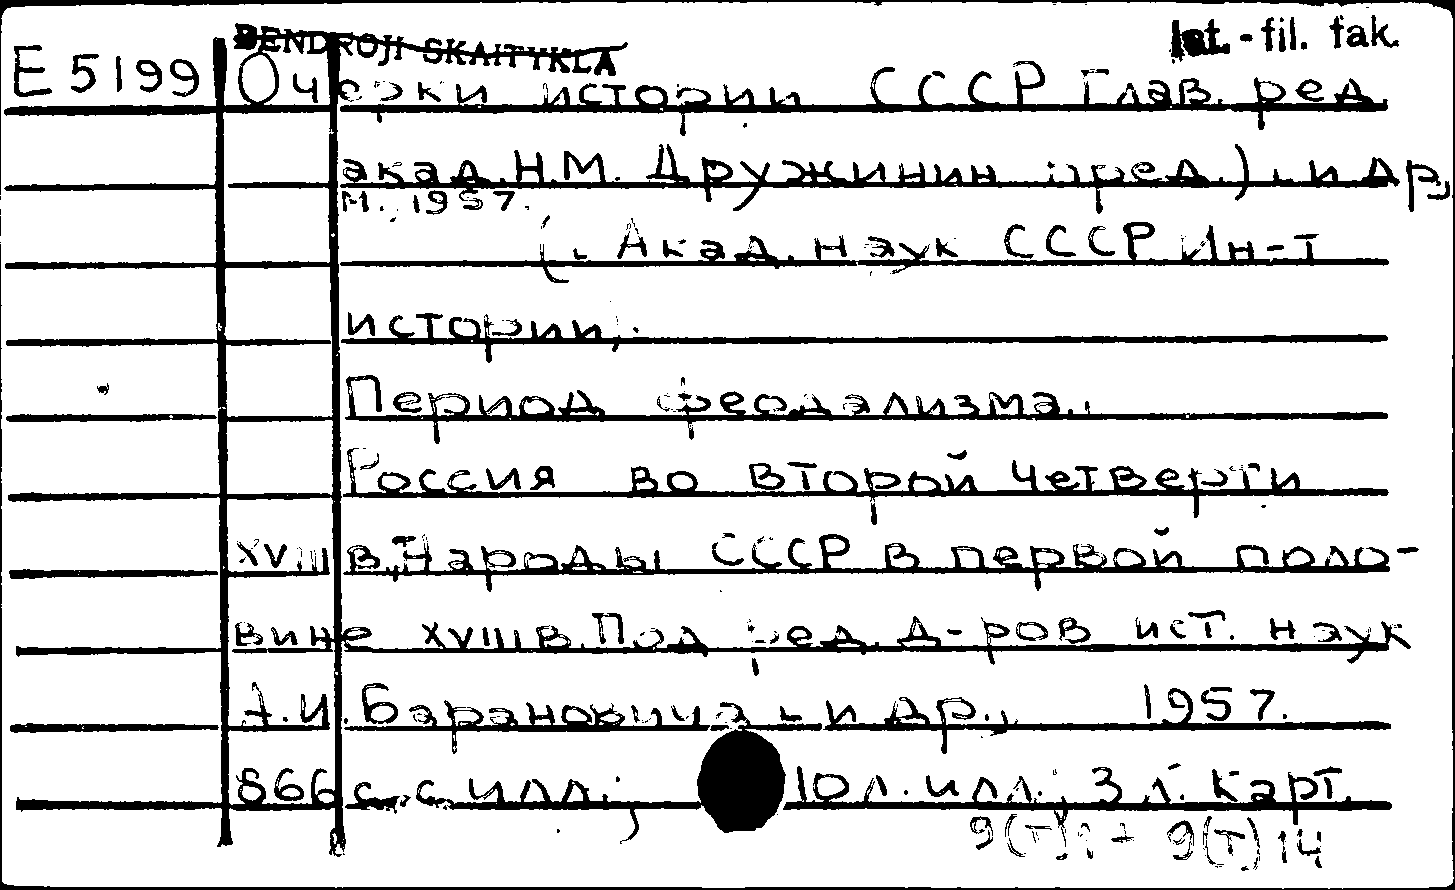 BENDROJI SKAITYKLA
Ist.-fil. fak.
E 5199 Очерки истории СССР Глав. ред.
акад. Н.М. Дружинин пред.) и др.,
М. 1957.
(. Акад. наук СССР Ин-т
истории,.
Период феодализма.,
Россия во второй четверти
XVIII в. Народы СССР в первой поло-
вине XVIII в. Под ред. д-ров ист. наук
А.И. Барановича и др., 1957.
866 с. с илл.; 10 л. илл.; 3 л. карт.
9(Т)1+ 9(Т)14